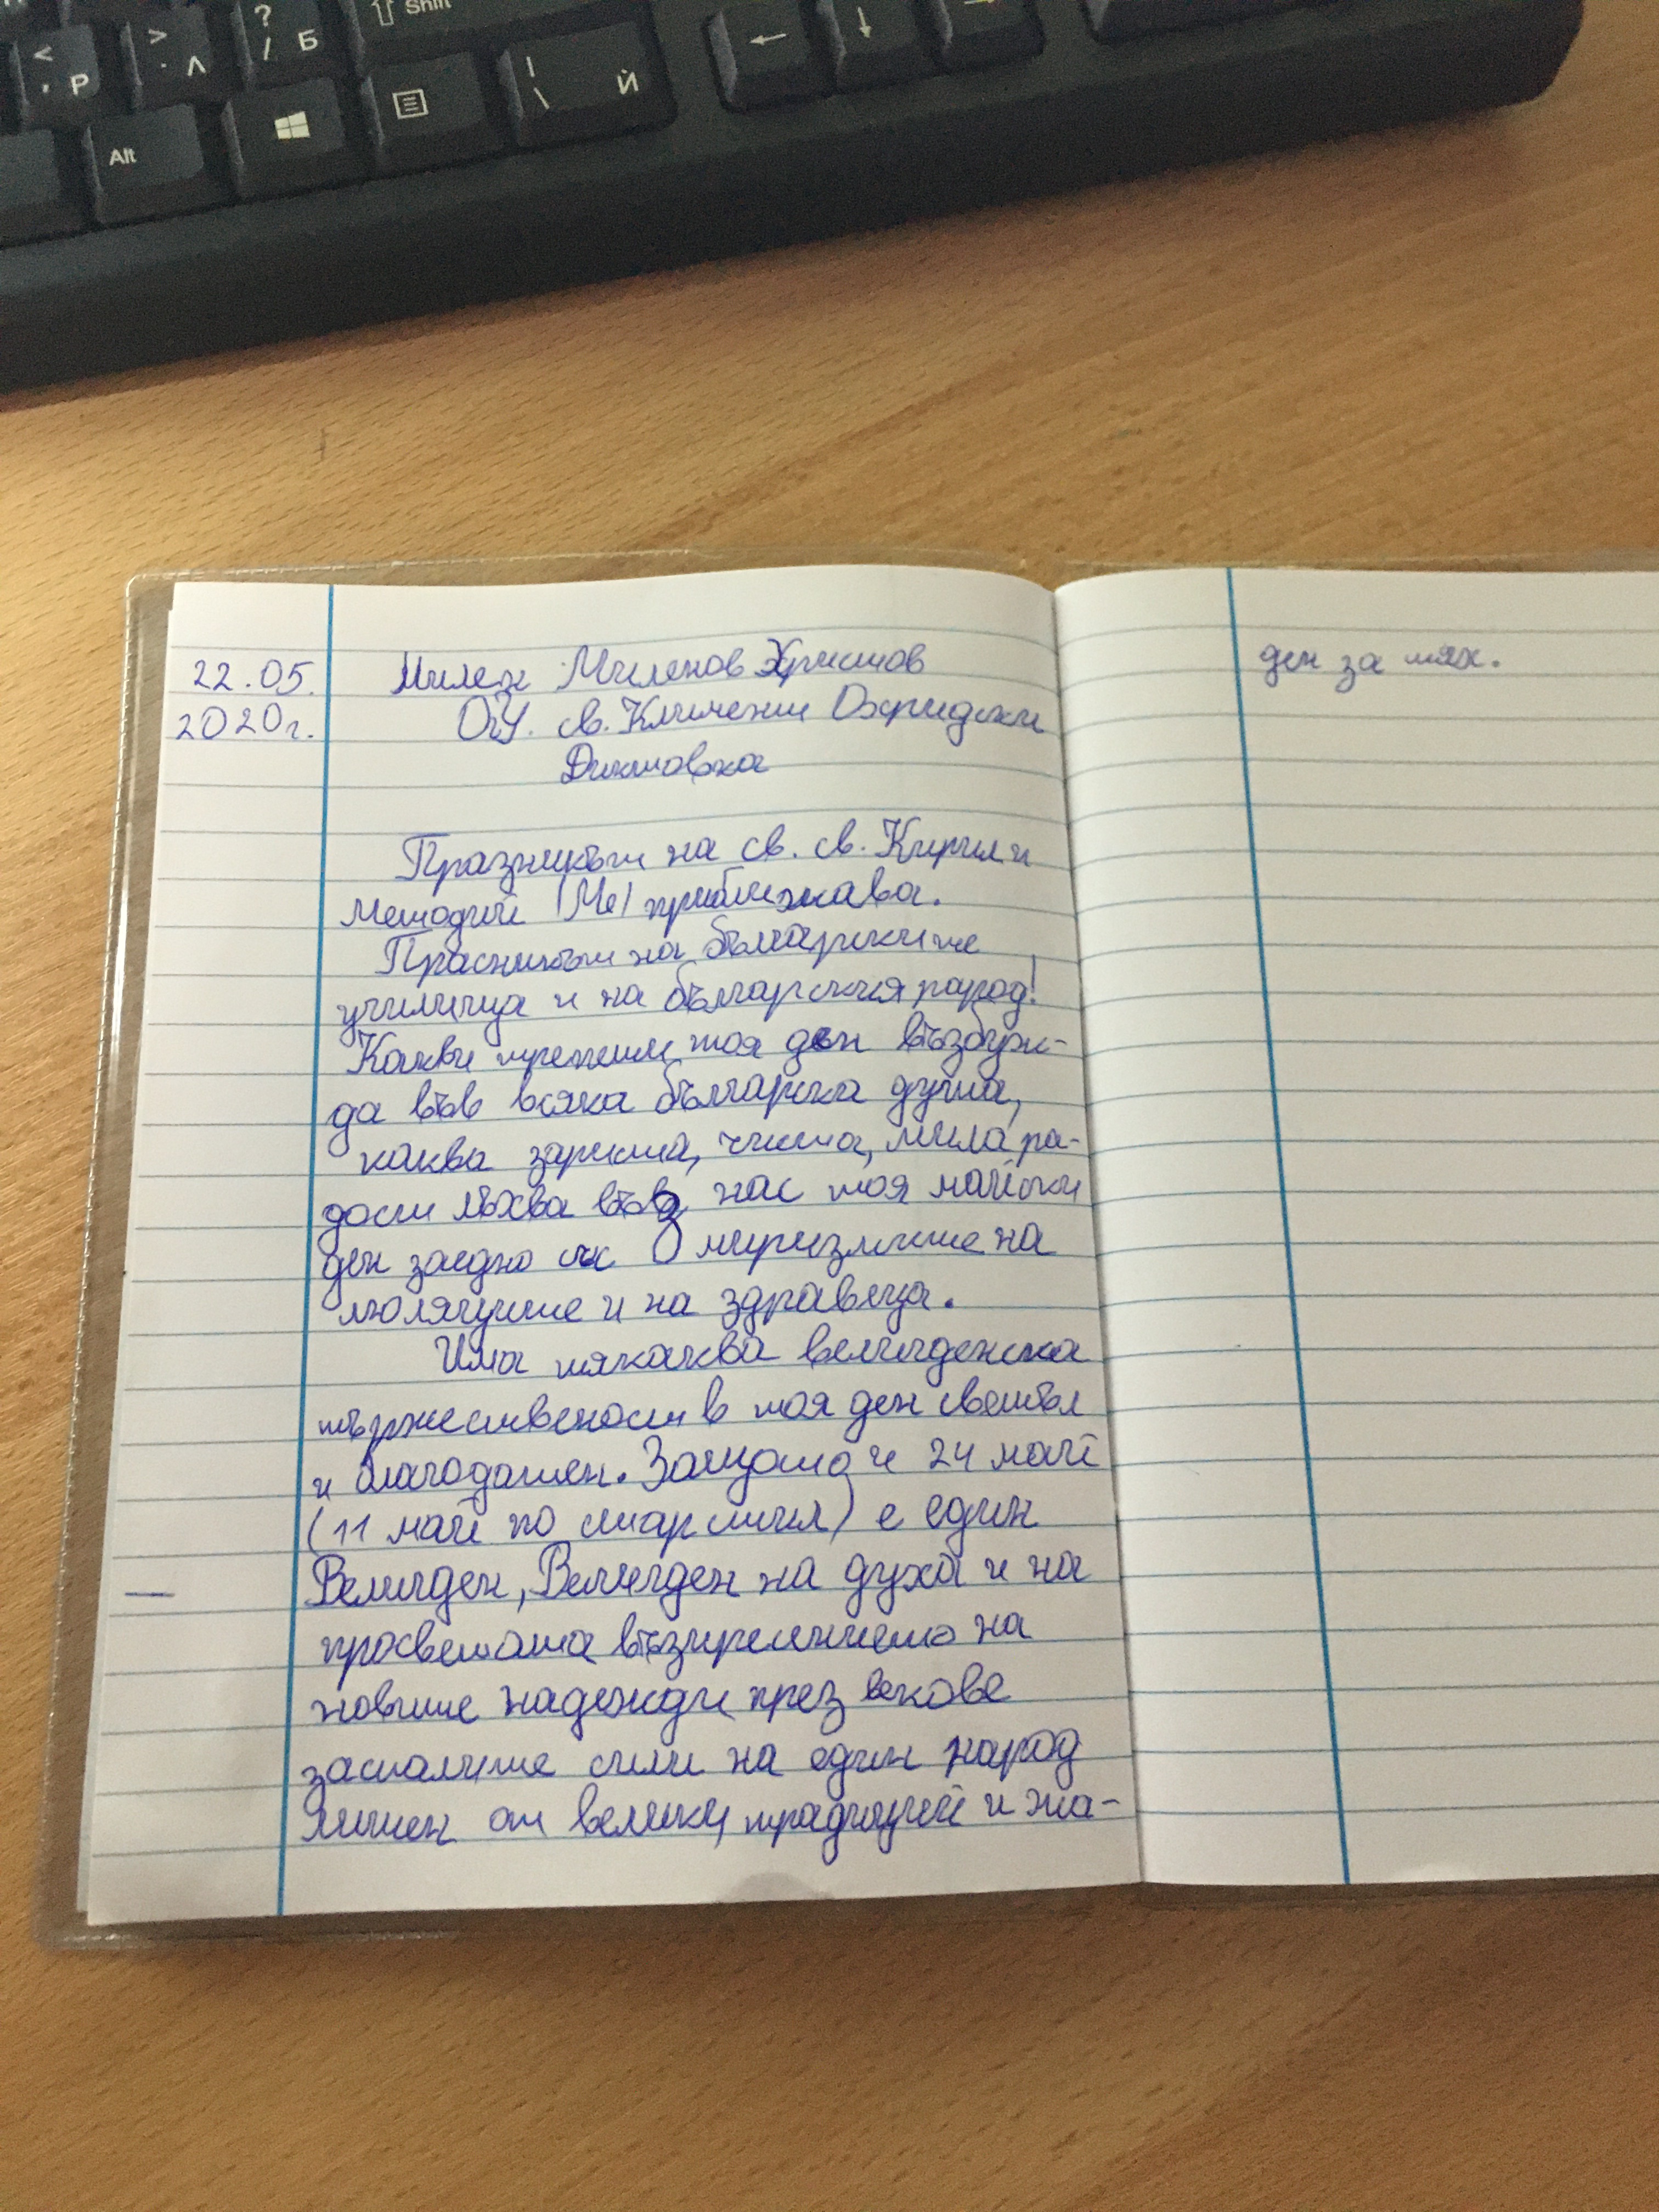 Shift
?
/ Б
>
. Л
<
, Р
|
\ Й
Alt
22.05.
2020г.
Милен Миленов Христов
ОУ. св. Климент Охридски
Дъктовка
Празникът на св. св. Кирил и
Методий (Ме) приближава.
Прасникът на българските
училища и на българския народ!
Какви трепети тоя ден възбуж-
да във всяка българска душа,
каква зариста, чиста, мила ра-
дост лъхва във нас тоя майски
ден заедно със миризмите на
люляците и на здравеца.
Има някаква великденска
тържественост в тоя ден светъл
и благодатен. Защото и 24 май
(11 май по стар стил) е един
Великден, Великден на духа и на
просветата възкресението на
новите надежди през векове
заспалите сили на един народ
лишен от велики традиций и жа-
ден за тях.